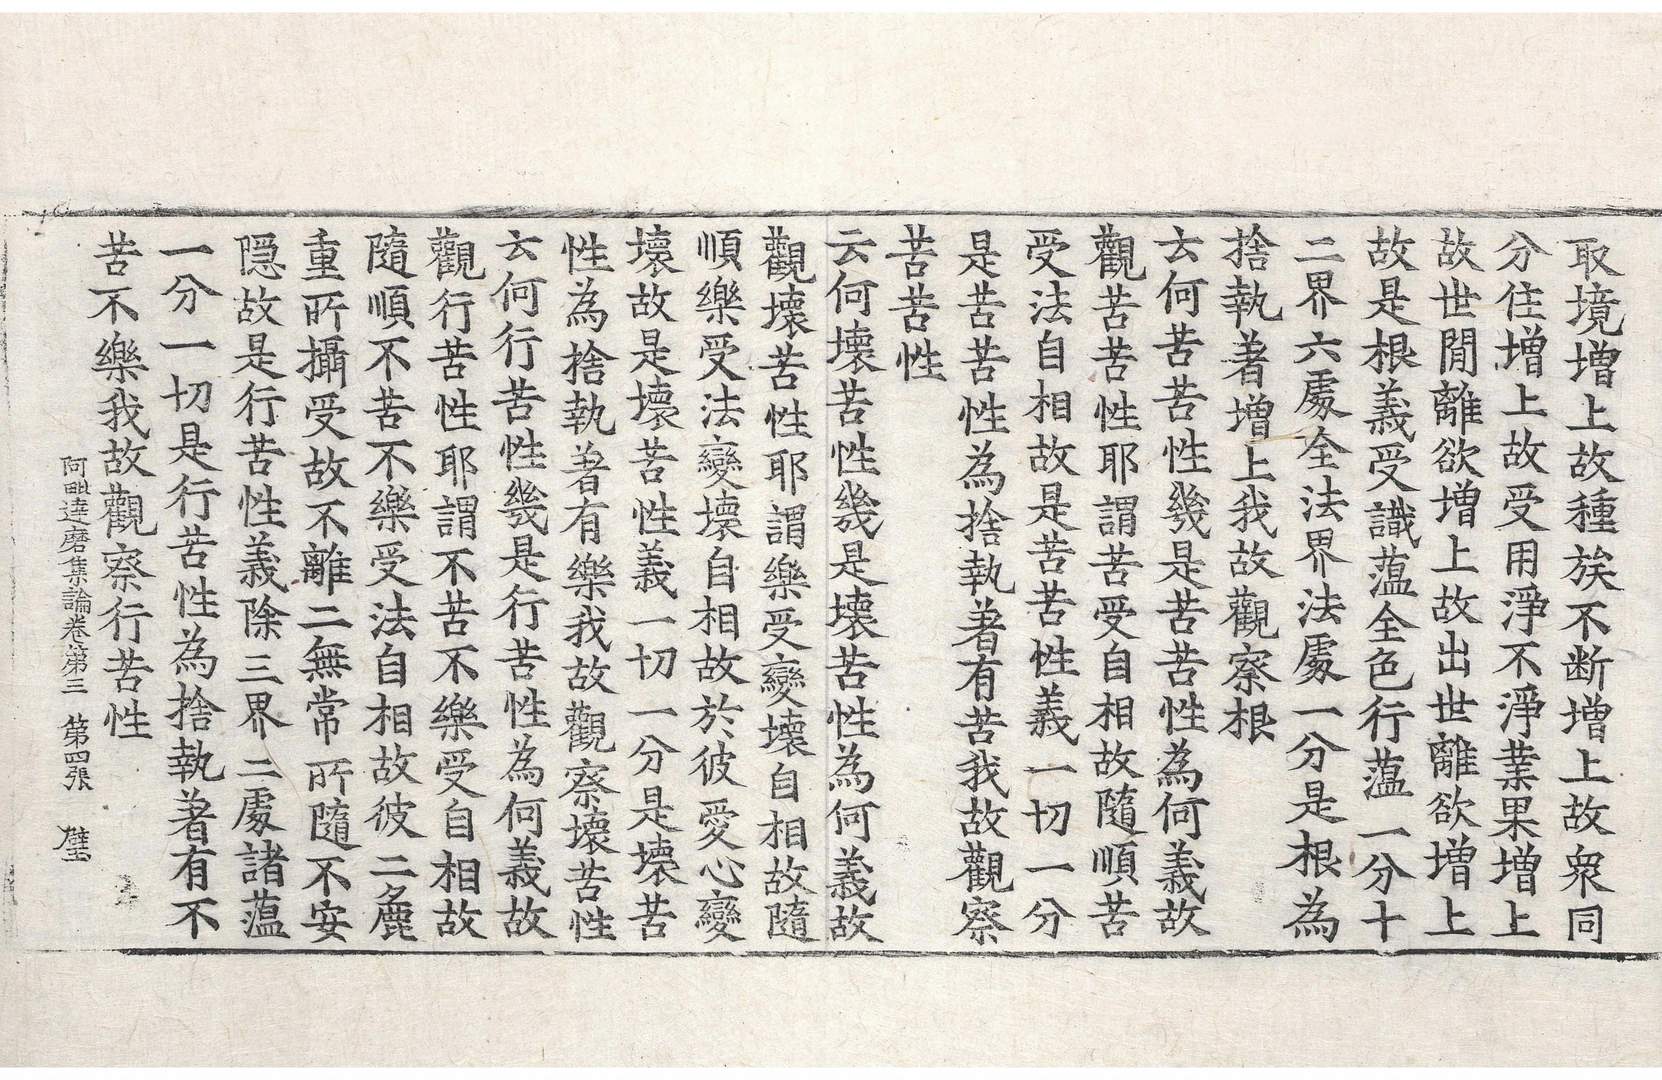 取境增上故種族不断增上故衆同
分住增上故受用淨不淨業果增上
故世閒離欲增上故出世離欲增上
故是根義受識藴全色行藴一分十
二界六處全法界法處一分是根為
捨執著增上我故觀察根
云何苦苦性幾是苦苦性為何義故
觀苦苦性耶謂苦受自相故隨順苦
受法自相故是苦苦性義一切一分
是苦苦性為捨執著有苦我故觀察
苦苦性
云何壞苦性幾是壞苦性為何義故
觀壞苦性耶謂樂受變壞自相故隨
順樂受法變壞自相故於彼愛心變
壞故是壞苦性義一切一分是壞苦
性為捨執著有樂我故觀察壞苦性
云何行苦性幾是行苦性為何義故
觀行苦性耶謂不苦不樂受自相故
隨順不苦不樂受法自相故彼二麁
重所攝受故不離二無常所隨不安
隠故是行苦性義除三界二處諸藴
一分一切是行苦性為捨執著有不
苦不樂我故觀察行苦性
阿毗達磨集論卷第三　第四張　璧